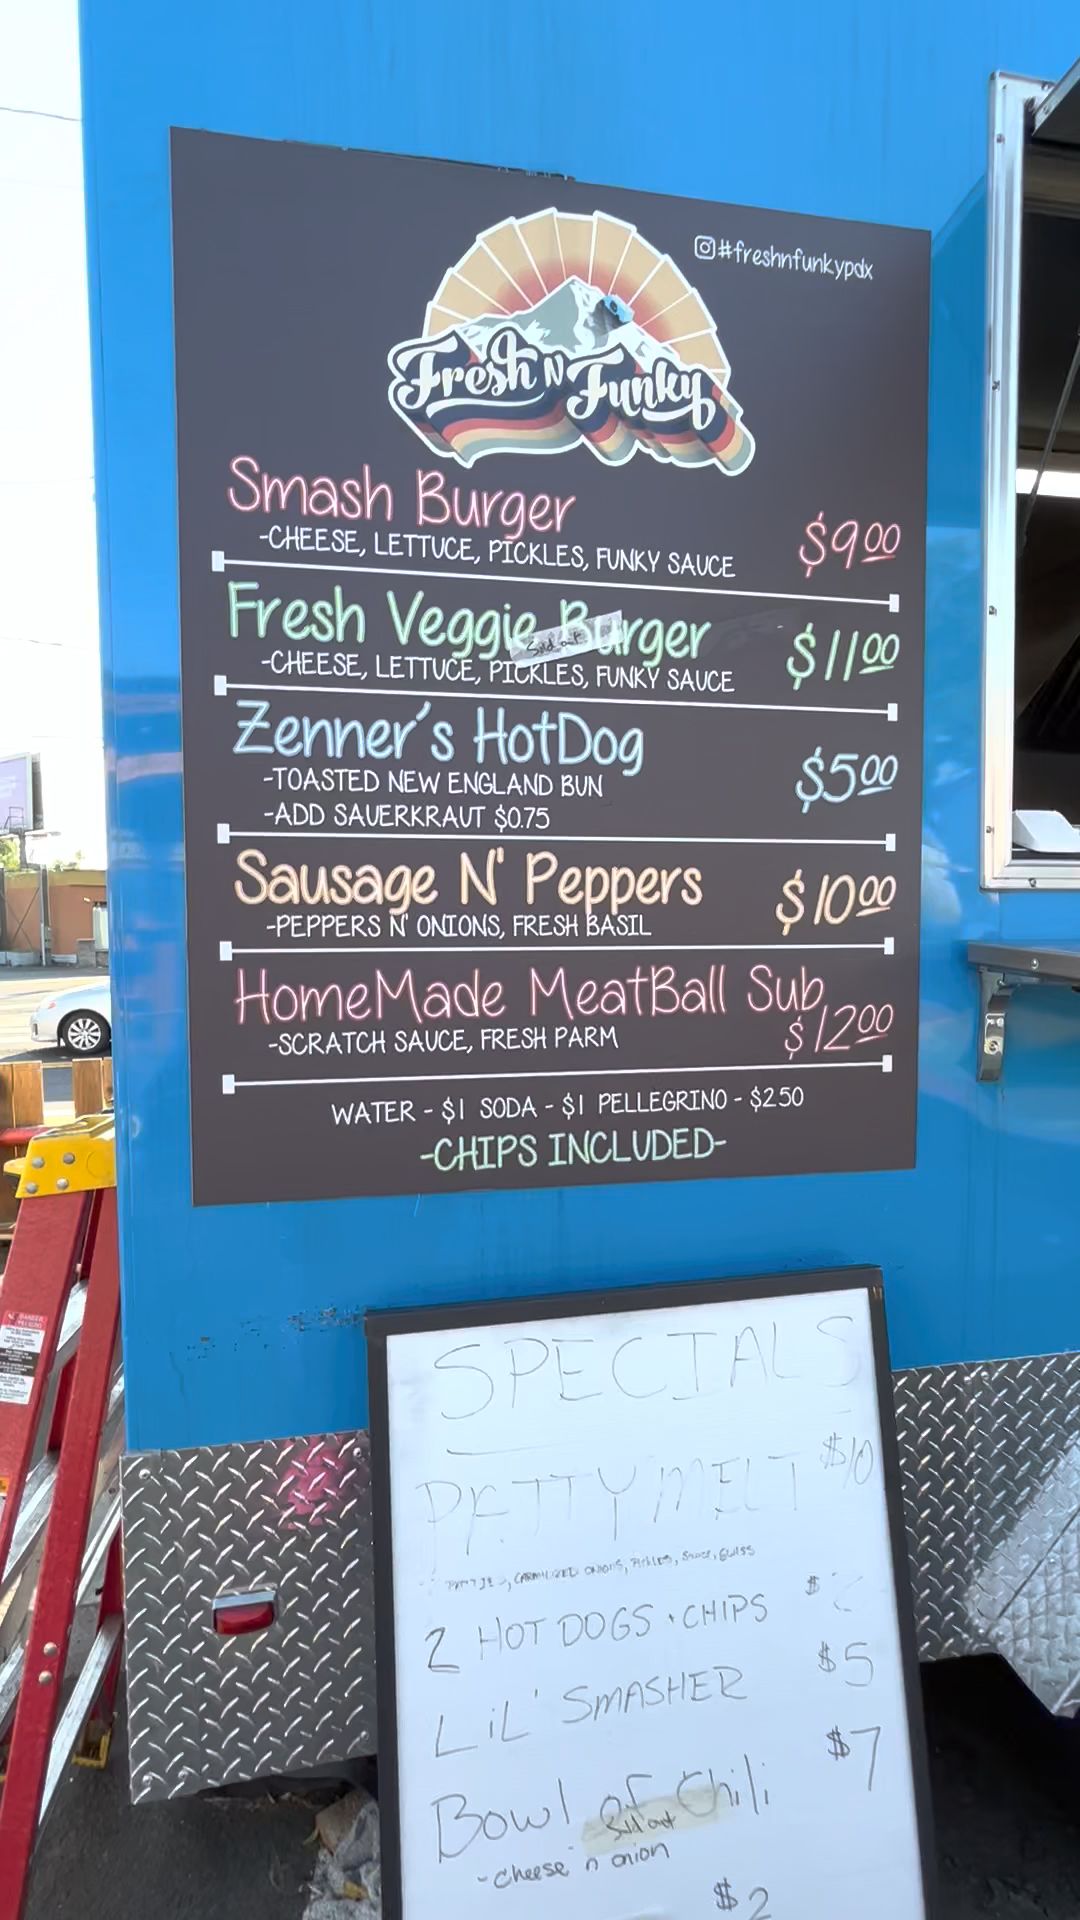 #freshnfunkypdx
Fresh N Funky
Smash Burger
-CHEESE, LETTUCE, PICKLES, FUNKY SAUCE $9.00
Fresh Veggie Burger
Sold out
-CHEESE, LETTUCE, PICKLES, FUNKY SAUCE $11.00
Zenner's HotDog
-TOASTED NEW ENGLAND BUN $5.00
-ADD SAUERKRAUT $0.75
Sausage N' Peppers $10.00
-PEPPERS N' ONIONS, FRESH BASIL
HomeMade MeatBall Sub
-SCRATCH SAUCE, FRESH PARM $12.00
WATER - $1 SODA - $1 PELLEGRINO - $2.50
-CHIPS INCLUDED-
SPECIALS
PATTY MELT $10
CARAMLIZED ONIONS, PICKLES, SAUCE, SWISS
2 HOT DOGS + CHIPS $
LiL' SMASHER $5
Bowl of Chili $7
Sold out
- cheese n onion
$2